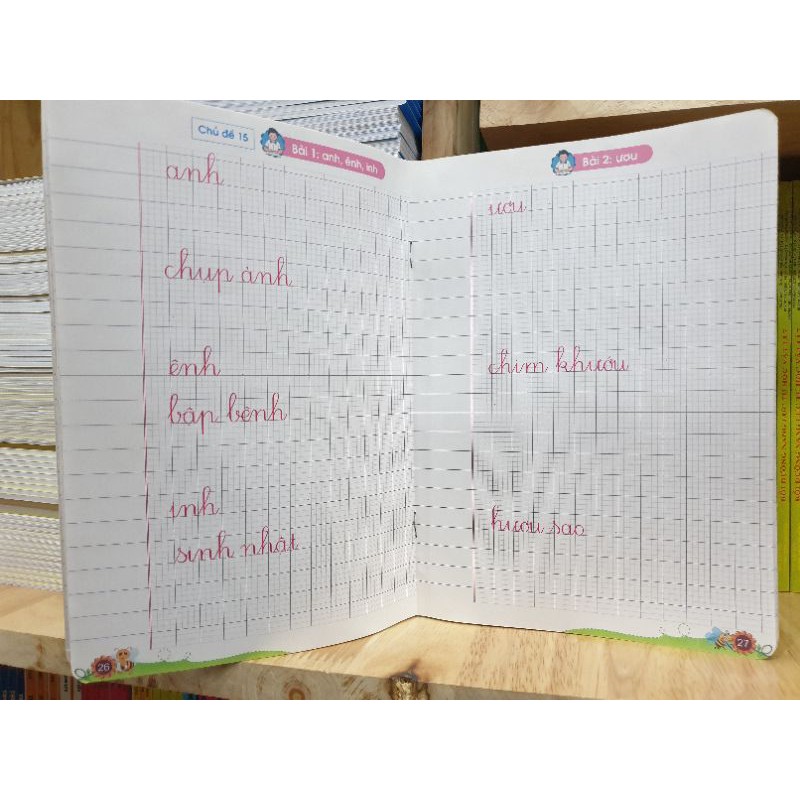 Chủ đề 15
Bài 1: anh, ênh, inh
anh
chụp ảnh
ênh
bập bênh
inh
sinh nhật
26
Bài 2: ươu
ươu
chim khướu
hươu sao
27